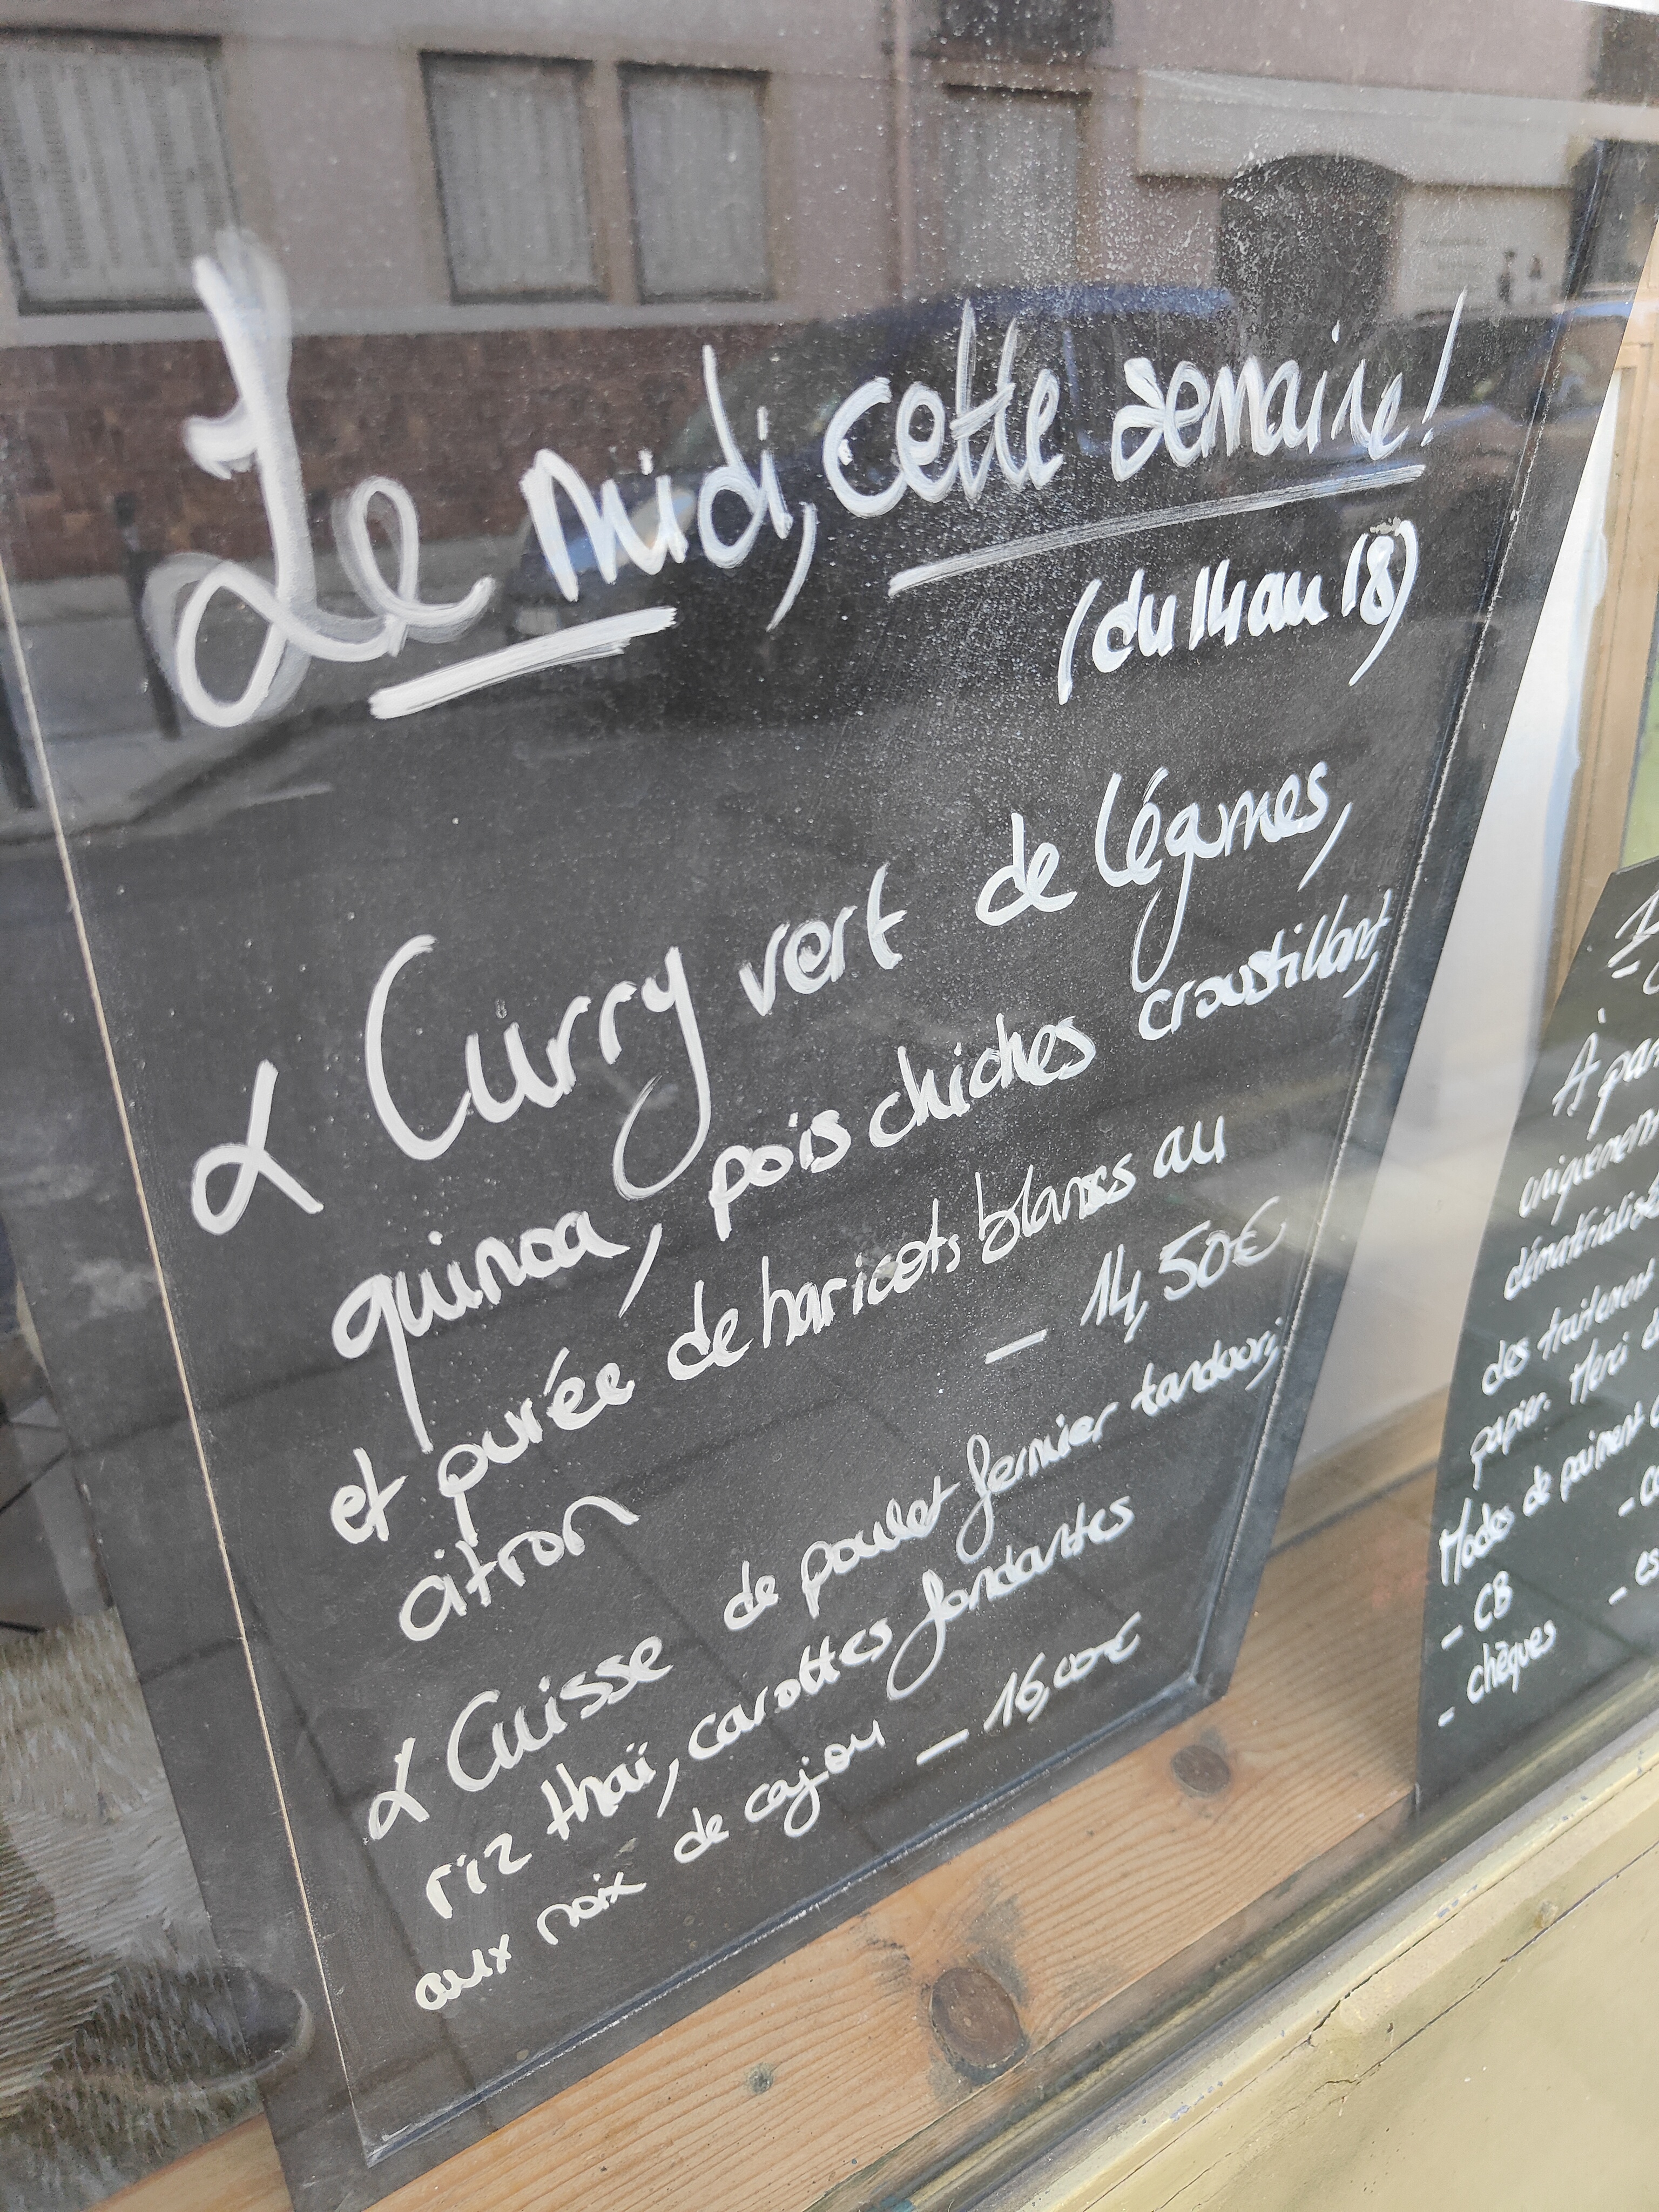 Le midi, cette semaine!
(du 14 au 18)
Curry vert de légumes,
quinoa, pois chiches croustillant,
et purée de haricots blancs au
citron
— 14,50€
Cuisse de poulet fermier tandoori,
riz thaï, carottes fondantes
aux noix de cajou — 16,00€
À par
uniquement
dématérialisé
des traitement
papier. Merci d
Modes de paiment
- CB
- chèques
- es